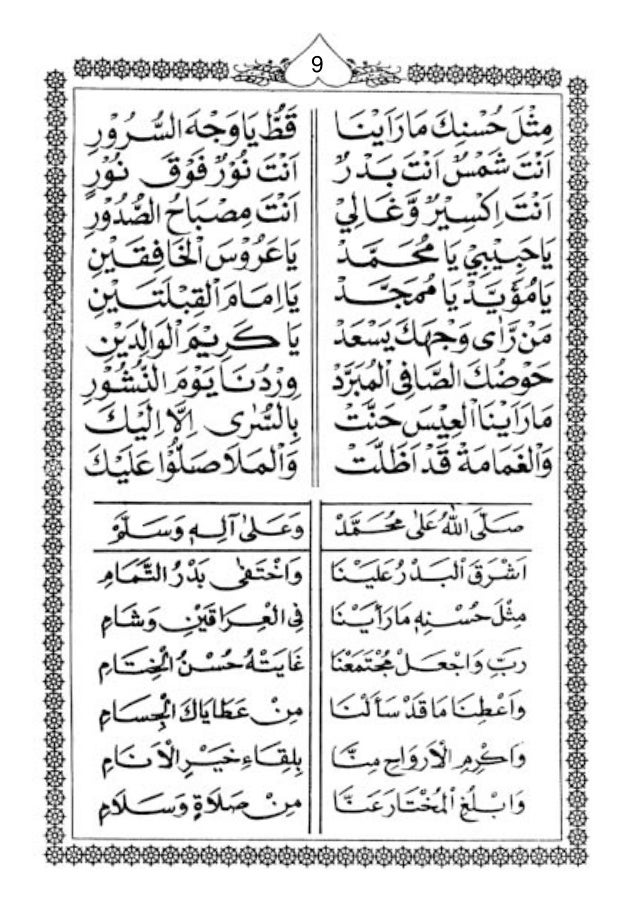 9
مِثْلَ حُسْنِكَ مَارَاَيْنَا قَطُّ يَا وَجْهَ السُّرُوْرِ
اَنْتَ شَمْسٌ اَنْتَ بَدْرٌ اَنْتَ نُوْرٌ فَوْقَ نُوْرٍ
اَنْتَ اِكْسِيْرٌ وَّغَالِيْ اَنْتَ مِصْبَاحُ الصُّدُوْرِ
يَاحَبِيْبِيْ يَا مُحَمَّدْ يَا عَرُوْسَ الْخَافِقَيْنِ
يَامُؤَيَّدْ يَا مُمَجَّدْ يَا اِمَامَ الْقِبْلَتَيْنِ
مَنْ رَّاٰى وَجْهَكَ يَسْعَدْ يَا كَرِيْمَ الْوَالِدَيْنِ
حَوْضُكَ الصَّافِى الْمُبَرَّدْ وِرْدُنَا يَوْمَ النُّشُوْرِ
مَارَاَيْنَا الْعِيْسَ حَنَّتْ بِالسُّرٰى اِلَّا اِلَيْكَ
وَالْغَمَامَةْ قَدْ اَظَلَّتْ وَالْمَلَا صَلُّوْا عَلَيْكَ
صَلَّى اللّٰهُ عَلٰى مُحَمَّدْ وَعَلٰى آلِهِ وَسَلَّمْ
اَشْرَقَ الْبَدْرُ عَلَيْنَا وَاخْتَفٰى بَدْرُ التَّمَامِ
مِثْلَ حُسْنِهِ مَارَأَيْنَا فِى الْعِرَاقَيْنِ وَشَامِ
رَبِّ وَاجْعَلْ مُجْتَمَعْنَا غَايَتْهُ حُسْنُ الْخِتَامِ
وَاَعْطِنَا مَا قَدْ سَأَلْنَا مِنْ عَطَايَاكَ الْجِسَامِ
وَاَكْرِمِ الْاَرْوَاحِ مِنَّا بِلِقَاءِ خَيْرِ الْاَنَامِ
وَابْلُغِ الْمُخْتَارَ عَنَّا مِنْ صَلَاةٍ وَسَلَامِ